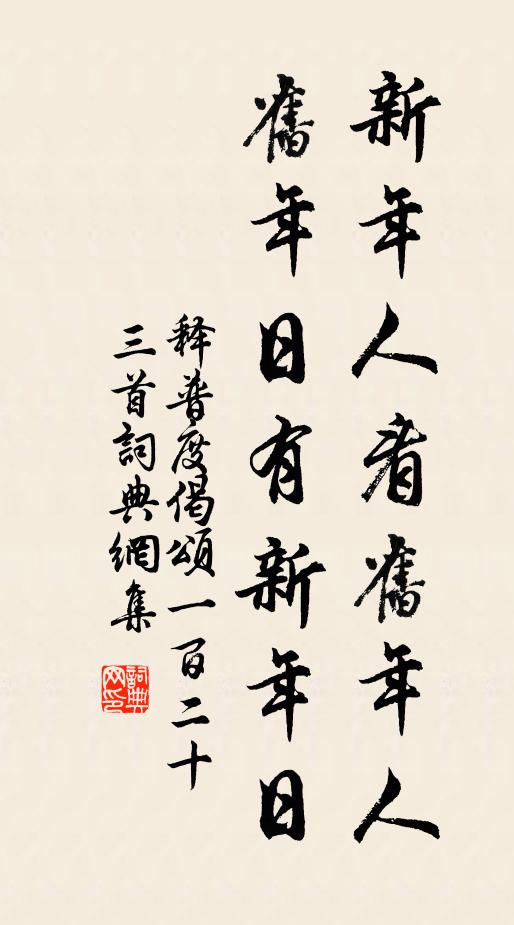 新年人看舊年人
舊年日有新年日
释普度偈頌一百二十
三首詞典網集
詞典
网印